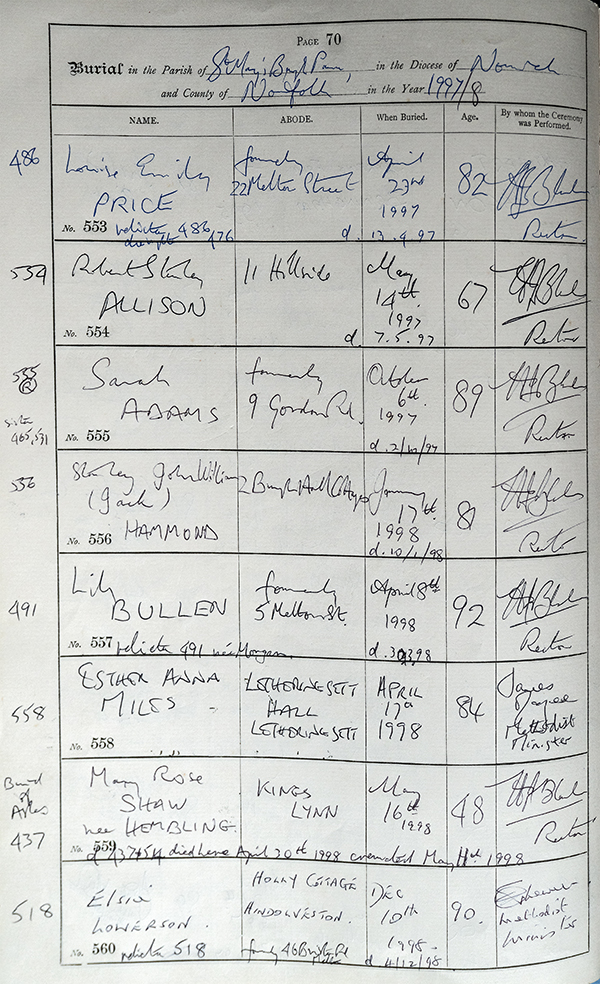 PAGE 70
Burial in the Parish of St Mary's Burgh Parva, in the Diocese of Norwich
and County of Norfolk in the Year 1997/8
NAME. ABODE. When Buried. Age. By whom the Ceremony was Performed.
486 Louise Emily formerly April 82
PRICE 22 Melton Street 23rd
1997 Rector
No. 553 relicta 486 d. 13.4.97
476
554 Robert Stanley 11 Hillside May 67
ALLISON 14th
1997 Rector
No. 554 d. 7.5.97
555 Sarah formerly October 89
R ADAMS 9 Gordon Rd. 6th
sister 1997 Rector
465,531 No. 555 d. 2/10/97
556 Stanley John William 2 Burgh Hall Cottages January 81
(Jack) 17th
HAMMOND 1998 Rector
No. 556 d. 10/1/98
Lily formerly April 8th 92
491 BULLEN 5 Melton St. 1998 Rector
No. 557 relicta 491 née Morgan d.
ESTHER ANNA LETHERINGSETT APRIL 84 James
558 MILES HALL 17th Methodist
LETHERINGSETT 1998 Minister
No. 558
Burial of Ashes Mary Rose KINGS May 48
SHAW LYNN 16th
437 nee HEMBLING 1998 Rector
No. 559 died here April 30th 1998 cremated May 11th 1998
Elsie HOLLY COTTAGE DEC 90.
518 LOWERSON. HINDOLVESTON. 10th Methodist
1998 Minister
No. 560 relicta 518 formerly 46 Rd d 4/12/98
Melton